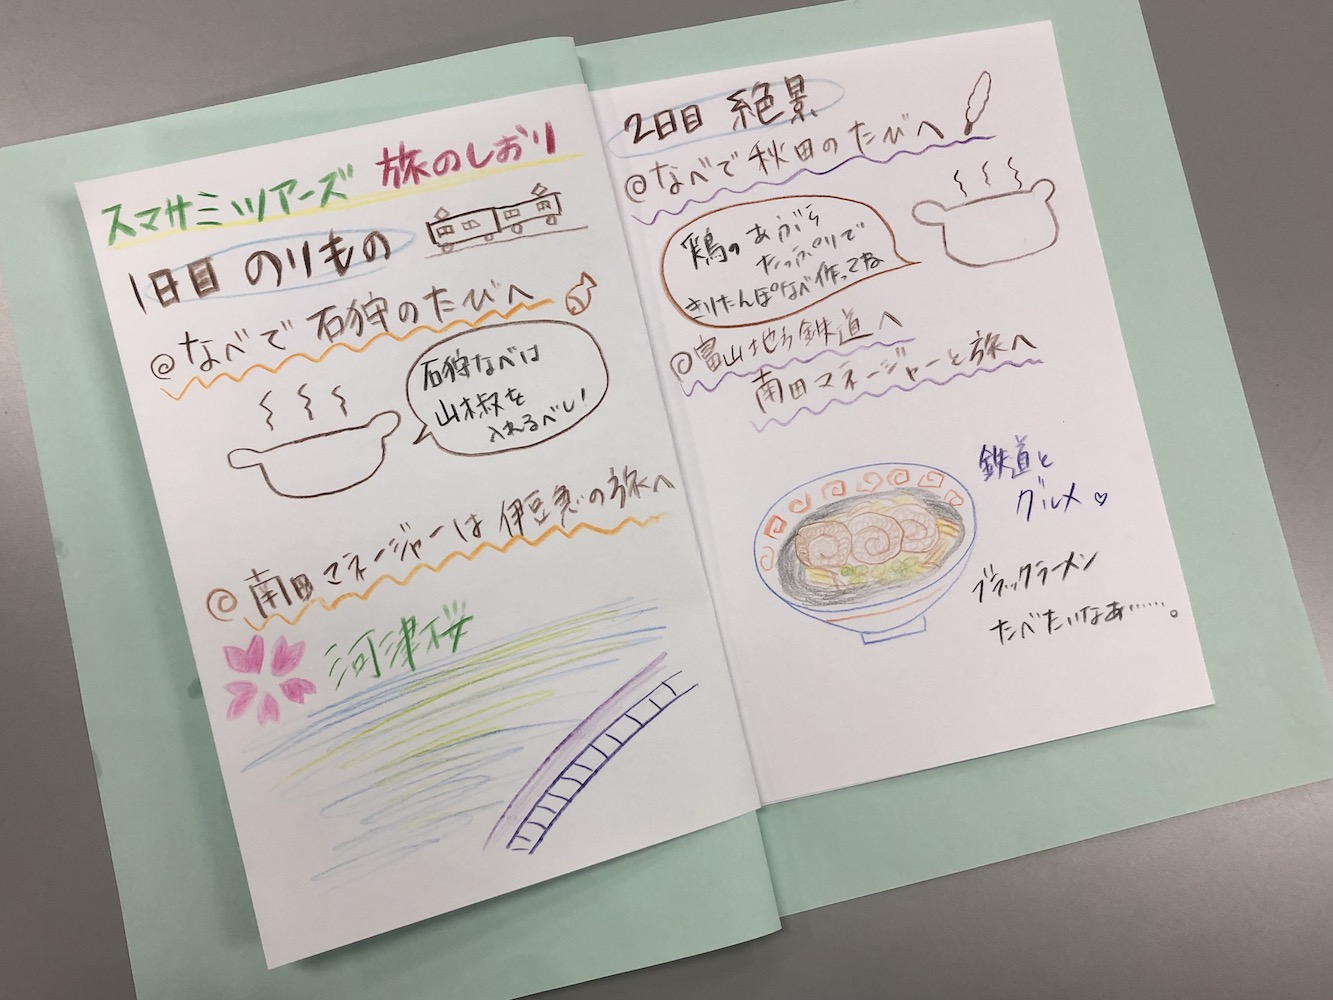 スマサミツアーズ 旅のしおり
1日目 のりもの
@なべで 石狩のたびへ
石狩なべは
山椒を
入れるべし!
@南田マネージャーは伊豆急の旅へ
河津桜
2日目 絶景
@なべで秋田のたびへ
鶏のあぶら
たっぷりで
きりたんぽなべ作ってね
@富山地方鉄道へ
南田マネージャーと旅へ
鉄道と
グルメ♡
ブラックラーメン
たべたいなあ……。